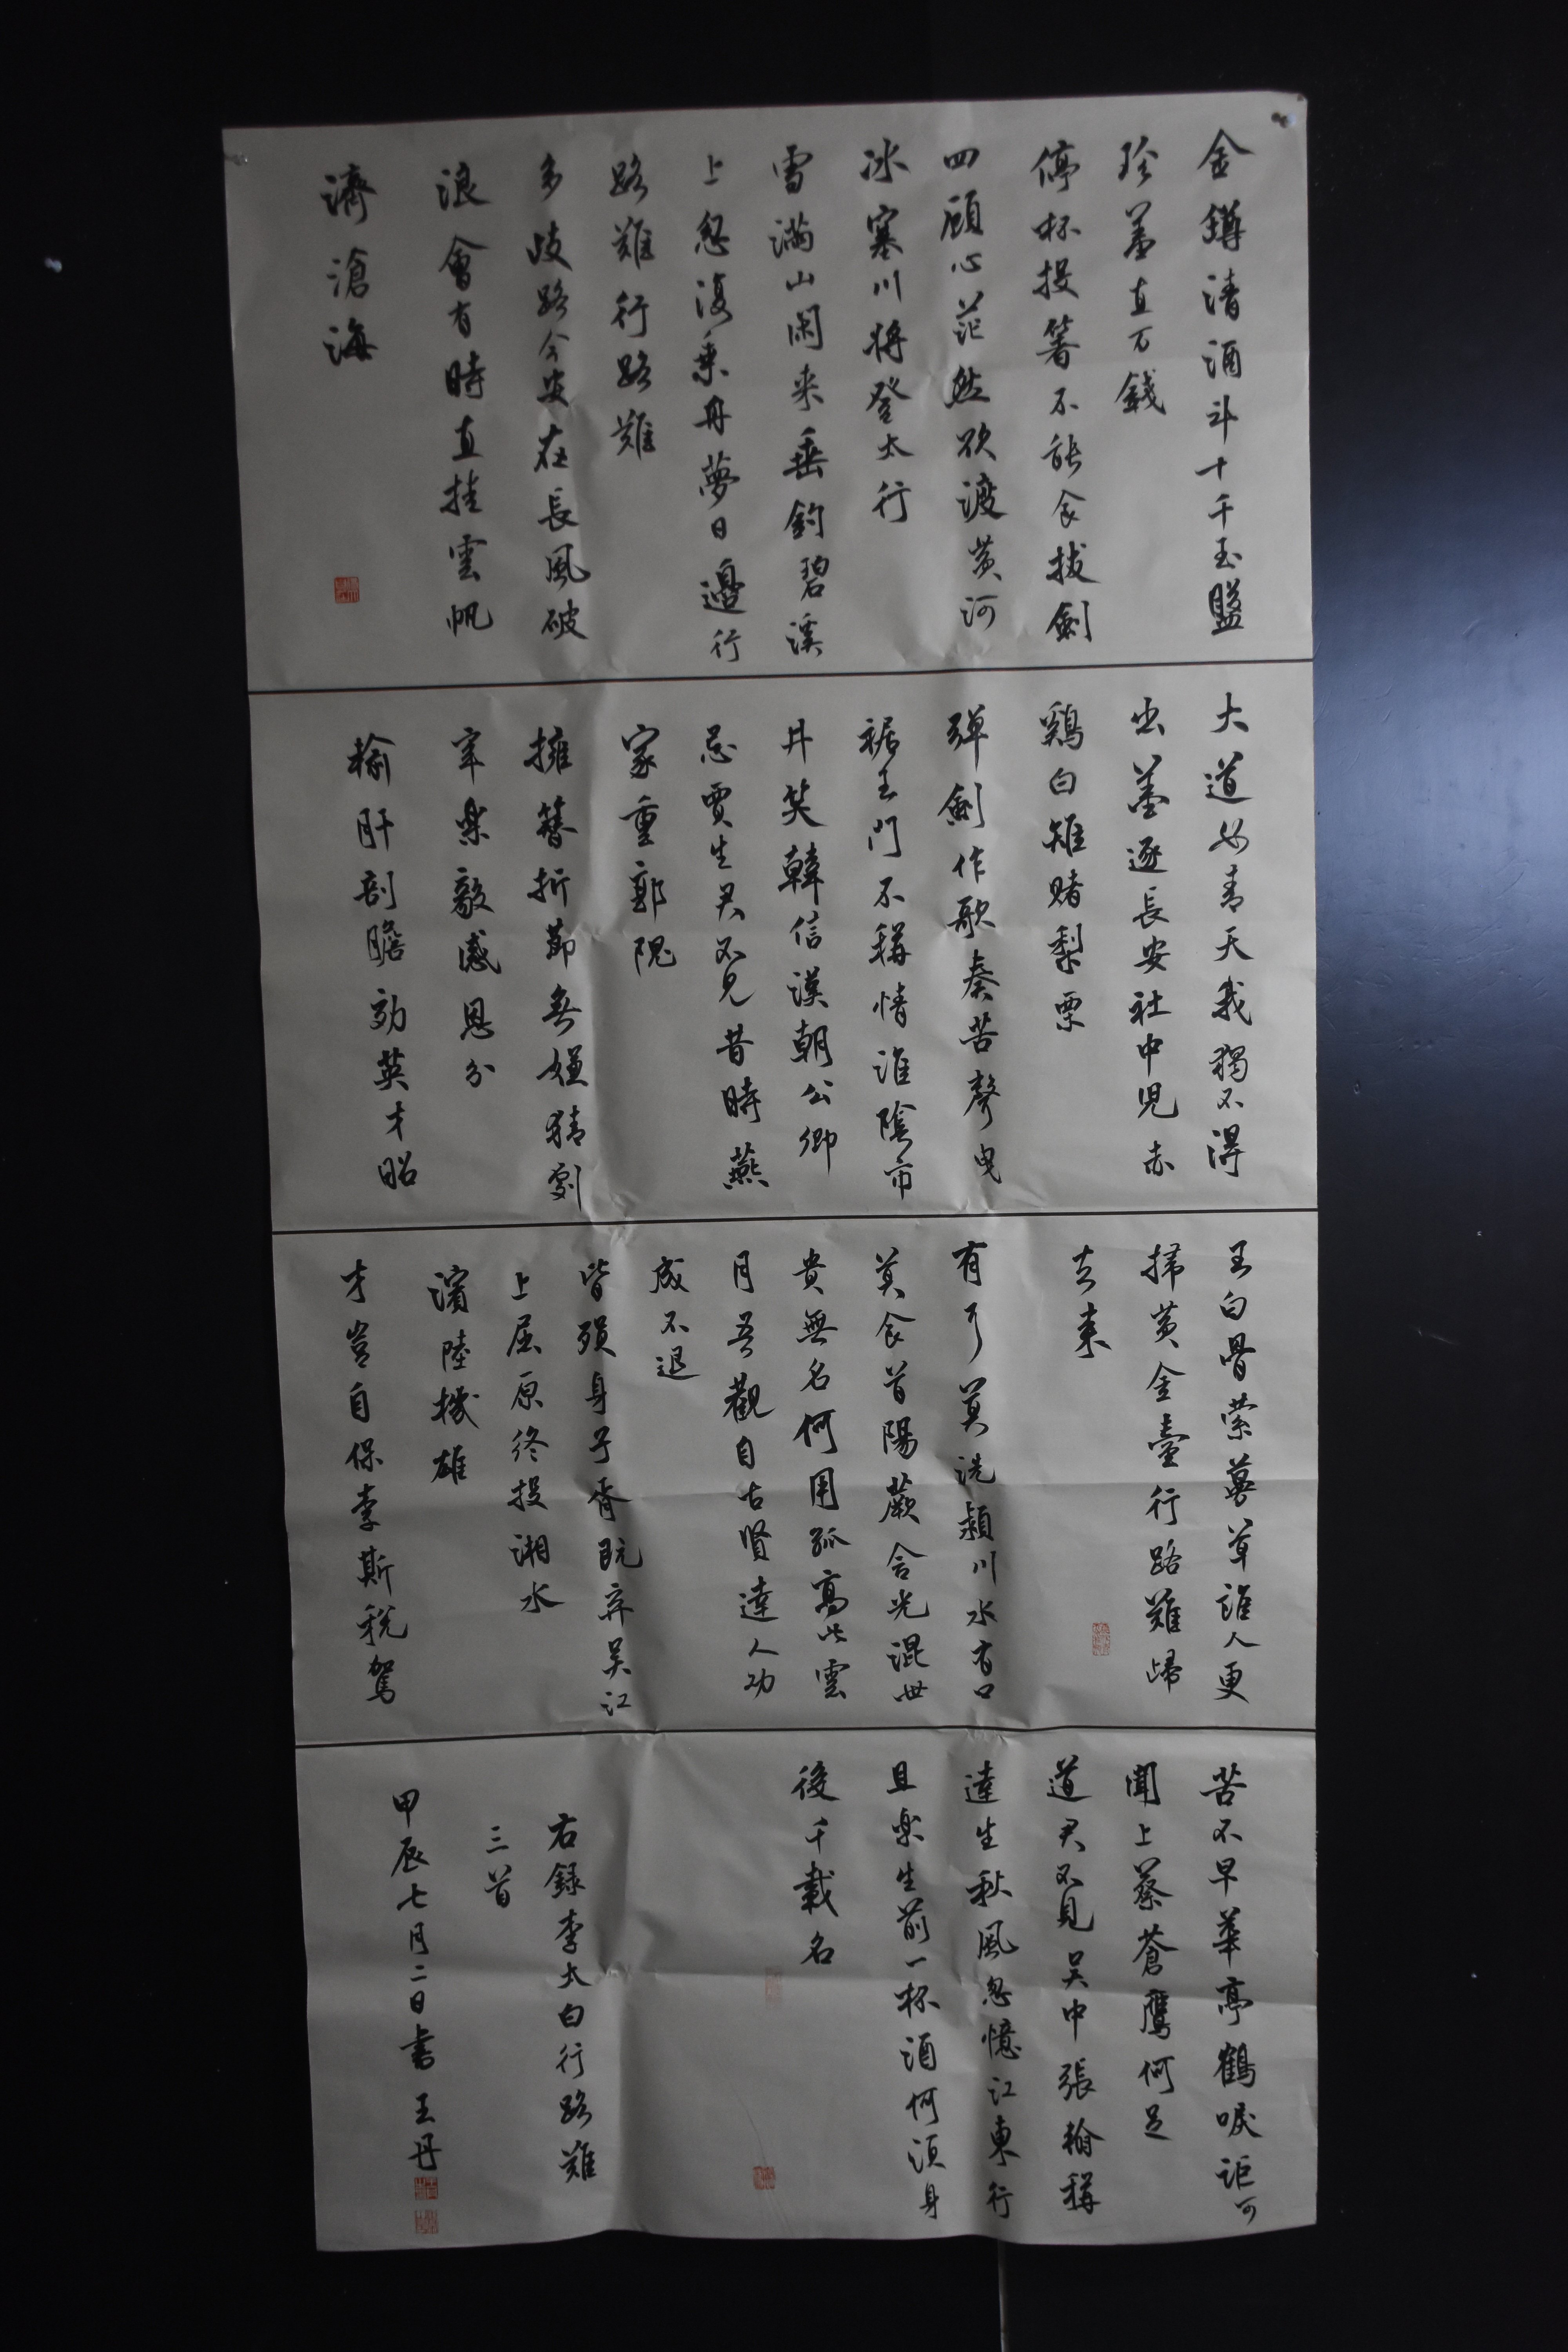 金鐏清酒斗十千玉盤
珍羞直万錢
停杯投箸不能食拔劍
四顧心茫然欲渡黄河
冰塞川將登太行
雪滿山閑来垂釣碧溪
上忽復乗舟夢日邊行
路難行路難
多歧路今安在長風破
浪會有時直挂雲帆
濟滄海
大道如青天我獨不得
出羞逐長安社中児赤
鷄白雉賭梨栗
彈劍作歌奏苦聲曳
裾王門不稱情淮陰市
井笑韓信漢朝公卿
忌賈生君不見昔時燕
家重郭隗
擁篲折節無嫌猜劇
辛楽毅感恩分
輸肝剖膽効英才昭
王白骨縈蔓草誰人更
掃黄金臺行路難歸
去来
有耳莫洗潁川水有口
莫食首陽蕨含光混世
貴無名何用孤高比雲
月吾觀自古賢達人功
成不退
皆殞身子胥既弃吴江
上屈原終投湘水
濱陸機雄
才豈自保李斯税駕
苦不早華亭鶴唳詎可
聞上蔡蒼鷹何足
道君不見吴中張翰稱
達生秋風忽憶江東行
且楽生前一杯酒何須身
後千載名
右録李太白行路難
三首
甲辰七月二日書王丹